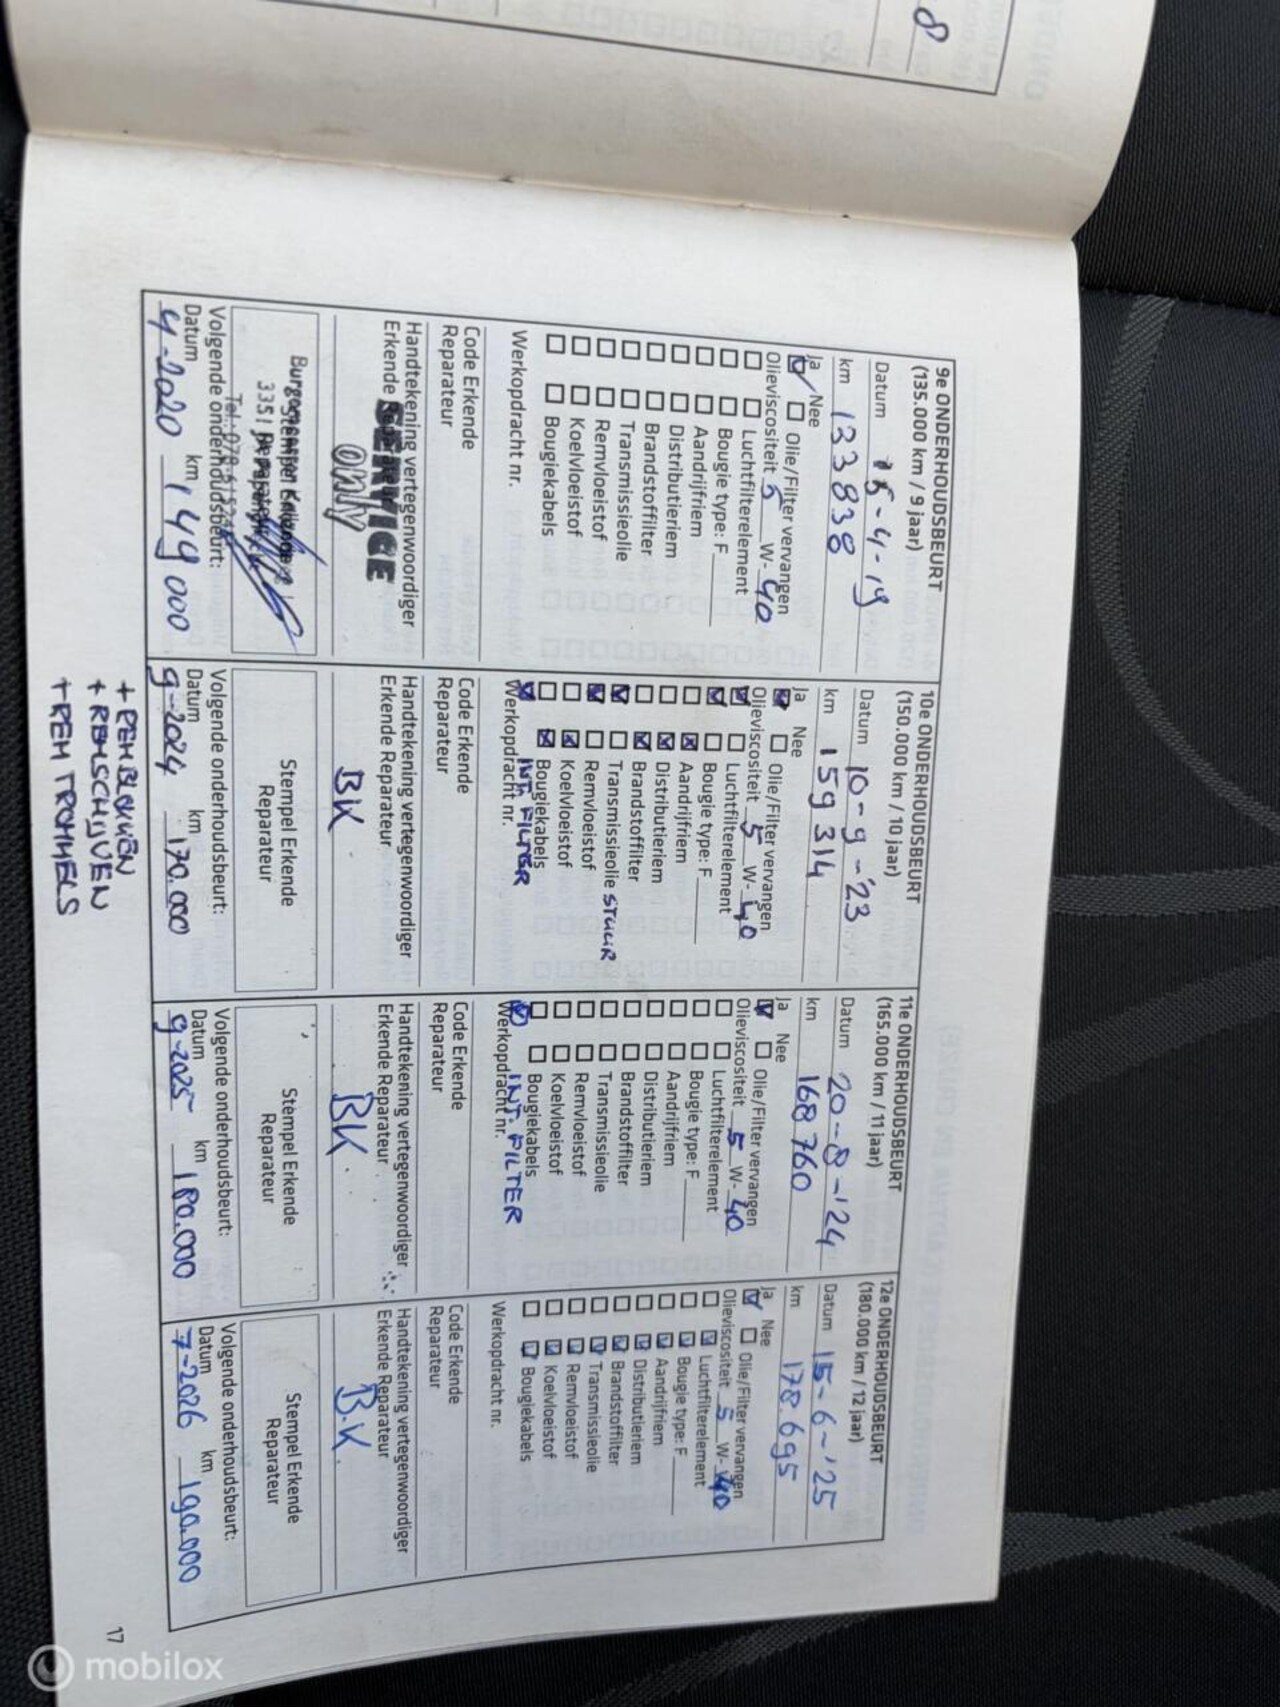 8
9e ONDERHOUDSBEURT
(135.000 km / 9 jaar)
Datum 15-4-19
km 133838
Ja Nee
Olie/Filter vervangen
Olieviscositeit 5 W-40
Luchtfilterelement
Bougie type: F
Aandrijfriem
Distributieriem
Brandstoffilter
Transmissieolie
Remvloeistof
Koelvloeistof
Bougiekabels
Werkopdracht nr.
Code Erkende
Reparateur
Handtekening vertegenwoordiger
Erkende
SERVICE
only
Stempel Erkende
Volgende onderhoudsbeurt:
Datum km
4-2020 149000
10e ONDERHOUDSBEURT
(150.000 km / 10 jaar)
Datum 10-9-'23
km 159314
Ja Nee
Olie/Filter vervangen
Olieviscositeit 5 W-40
Luchtfilterelement
Bougie type: F
Aandrijfriem
Distributieriem
Brandstoffilter
Transmissieolie STUUR
Remvloeistof
Koelvloeistof
Bougiekabels
INT. FILTER
Werkopdracht nr.
Code Erkende
Reparateur
Handtekening vertegenwoordiger
Erkende Reparateur
BK
Stempel Erkende
Reparateur
Volgende onderhoudsbeurt:
Datum km
9-2024 170.000
+ REMBLOKKEN
+ REMSCHIJVEN
+ REM TROMMELS
11e ONDERHOUDSBEURT
(165.000 km / 11 jaar)
Datum 20-8-'24
km 168760
Ja Nee
Olie/Filter vervangen
Olieviscositeit 5 W-40
Luchtfilterelement
Bougie type: F
Aandrijfriem
Distributieriem
Brandstoffilter
Transmissieolie
Remvloeistof
Koelvloeistof
Bougiekabels
INT. FILTER
Werkopdracht nr.
Code Erkende
Reparateur
Handtekening vertegenwoordiger
Erkende Reparateur
BK.
Stempel Erkende
Reparateur
Volgende onderhoudsbeurt:
Datum km
9-2025 180.000
12e ONDERHOUDSBEURT
(180.000 km / 12 jaar)
Datum 15-6-'25
km 178.695
Ja Nee
Olie/Filter vervangen
Olieviscositeit 5 W-40
Luchtfilterelement
Bougie type: F
Aandrijfriem
Distributieriem
Brandstoffilter
Transmissieolie
Remvloeistof
Koelvloeistof
Bougiekabels
Werkopdracht nr.
Code Erkende
Reparateur
Handtekening vertegenwoordiger
Erkende Reparateur
B.K.
Stempel Erkende
Reparateur
Volgende onderhoudsbeurt:
Datum km
7-2026 190.000
17
mobilox